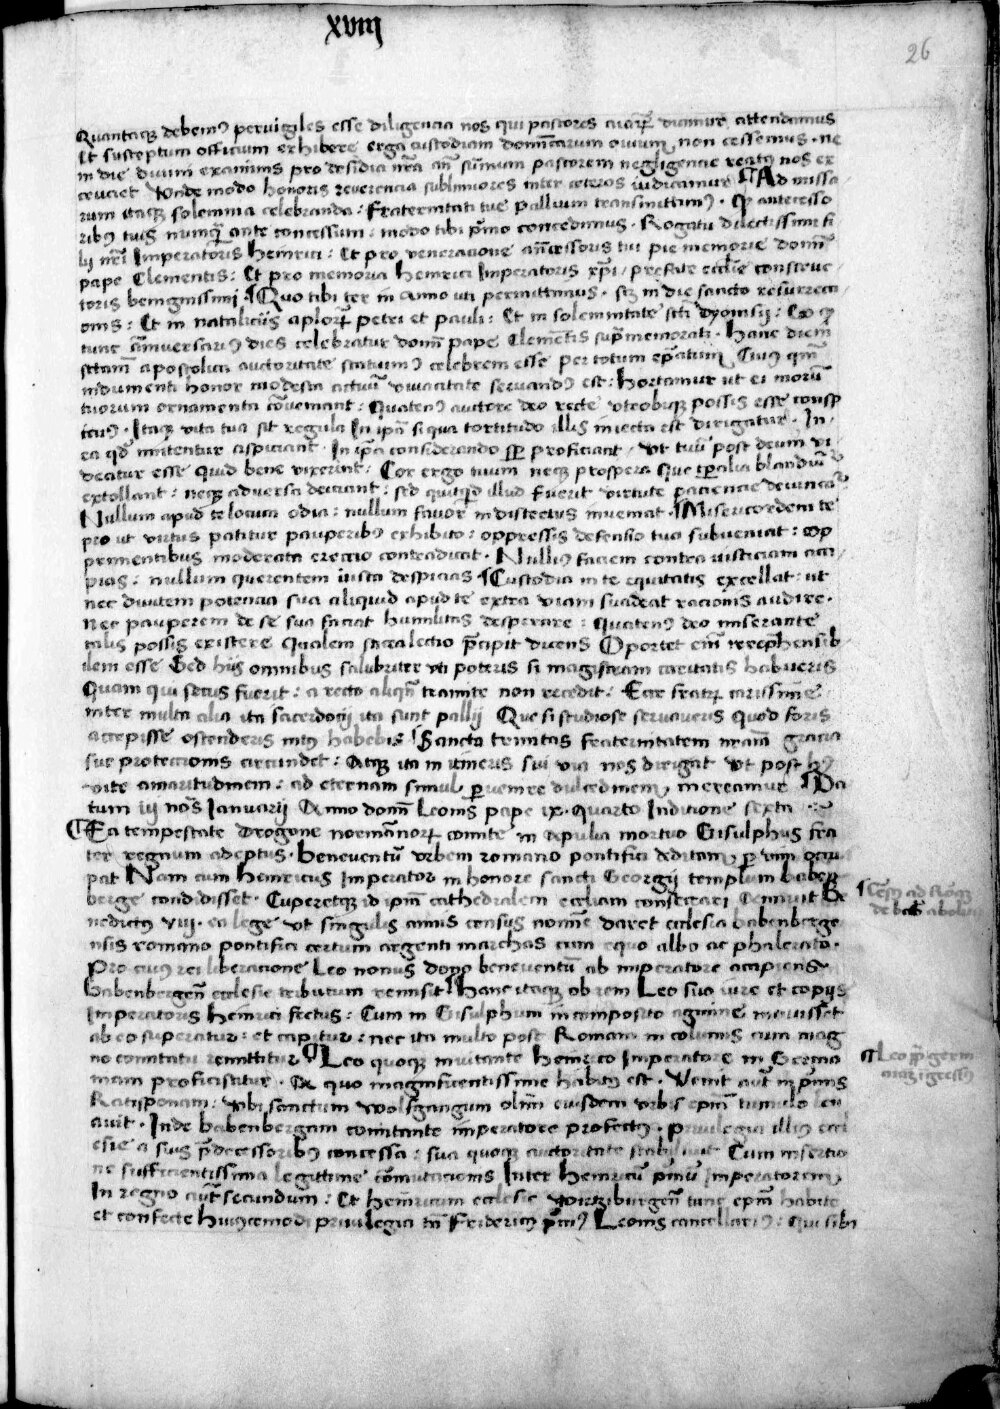 xviij
26
Quantaqꝫ debemꝰ pervigiles esse diligencia nos qui pastores aīaꝝ dicimur attendamus
Et susceptum officium exhibere erga custodiam dominicarum ouium non cessemus · ne
in die diuini examinis pro desidia nr̄a an̄ summum pastorem negligencie reatꝰ nos ex
cruciet Vnde modo honoris reuerencia sublimiores inter ceteros iudicamur ¶ Ad missa
rum itaqꝫ solemnia celebranda : Fraternitati tue pallium transmittimꝰ · Qd̄ antecesso
ribꝰ tuis nunqꝫ ante concessum : modo tibi p̄mo concedimus · Rogatu dilectissimi fi
lij nr̄i Imperatoris Heinrici : Et pro veneracione an̄cessoris tui pie memorie domni
pape Clementis : Et pro memoria Henrici Imperatoris xp̄i / prefate eccl̄ie construc
toris benignissimi · ¶ Quo tibi ter in Anno vti permittimus · scꝫ in die sancto resurrecti
onis : Et in nataliciis aplorꝝ petri et pauli : Et in solemnitate sc̄ti dyonisij : Eo qꝫ
tunc an̄iuersariꝰ dies celebratur domni pape Clementis sup̄memorati · Hanc diem
sc̄tam apostolica auctoritate statuimꝰ celebrem esse per totum ep̄atum Cuius qm̄
indumenti honor modesta actuū viuacitate seruandꝰ est : Hortamur ut ei morū
tuorum ornamenta ꝯueniant : Quatenꝰ autore deo recte vtrobiqꝫ possis esse consp
icuꝰ · Itaqꝫ vita tua sit regula In ip̄a si qua tortitudo illis iniecta est dirigatur · In
ea qd̄ imitentur aspiciant · In ip̄a considerando semꝑ proficiant / Vt tuū post deum vi
deatur esse quid bene vixerint : Cor ergo tuum neqꝫ prospera que tꝑalia blandiūt
extollant : neqꝫ aduersa deiciant : sed quitqd̄ illud fuerit virtute paciencie deuincat
Nullum apud te locum odia : nullum fauor indiscretus inueniat · ¶ Misericordem te
pro ut virtus patitur pauperibꝰ exhibito : oppressis defensio tua subueniat : op
primentibus moderata erectio contradicat · Nulliꝰ faciem contra iusticiam acci
pias : nullum querentem iusta despicias ¶ Custodia in te equitatis excellat : ut
nec diuitem potencia sua aliquid apud te extra viam suadeat racionis audire ·
Nec pauperem de se sua faciat humilitas desperare : Quatenꝰ deo miserante
talis possis existere Qualem sacra lectio p̄cipit dicens Oportet eīm irreprehensib
ilem esse Sed hijs omnibus salubriter vti poteris si magistram caritatis habueris
Quam qui secus fuerit : a recto aliqn̄ tramite non recedit : Ecce frater carissime
inter multa alia ita sacerdocij ita sunt pallij Que si studiose seruaueris Quod foris
accepisse ostenderis intꝰ habebis ¶ Sancta trinitas fraternitatem nr̄am gracia
sue protectionis circumdet : Atqꝫ ita in itineris sui via nos dirigat Vt post hꝰ
vite amaritudinem : ad eternam simul peruenire dulcedinem mereamur ¶ Da
tum iij nōs Januarij Anno domni Leonis pape ix · quarto Indictione sexta
¶ Ea tempestate Drogone normannorꝝ comite in Apulia mortuo Gisulphus fra
ter regnum adeptus · beneuentū vrbem romano pontifici deditam per vim occu
pat Nam cum Heinricus Imperator in honore sancti Georgij templum baben
berge condidisset · Cuperetqꝫ id ip̄m cathedralem eccliam consecrari Annuit Be
nedictus viij · ea lege vt singulis annis censꝰ nomine daret ecclesia babenberge
nsis romano pontifici certum argenti marchas cum equo albo ac phalerato ·
Pro cuius rei liberacione Leo nonus dono beneuentū ab imperatore accipiens
babenbergen̄ ecclesie tributum remisit ¶ Hanc itaqꝫ ob rem Leo suo iure et copijs
Imperatoris Heinrici fretus : Cum in Gisulphum incomposito agmine mouisset
ab eo superatur : et capitur : nec ita multo post Romam incolumis cum mag
no comitatu remittitur ¶ Leo quoqꝫ inuitante Heinrico Imperatore in Germa
niam proficiscitur · A quo magnificentissime habitꝰ est · Venit aūt in primis
Ratisponam : vbi sanctum wolfgangum olim eiusdem vrbis ep̄m tumulo leu
auit · Inde babenbergam comitante imperatore profectꝰ · priuilegia illius eccl
esie a suis p̄decessoribꝰ concessa : sua quoqꝫ auctoritate stabiliuit Cum insertio
ne sufficientissima legittime cōmutacionis Inter Heinricū p̄mū Imperatorem
In regno aūt secundum : Et Henricum ecclesie Wirtziburgen̄ tunc ep̄m habite
et confecte Huiuscemodi priuilegia tn̄ Fridericꝰ p̄nti Leonis cancellariꝰ : Qui sibi
¶ Censꝰ ad Romāqꝫ
de bab̄ abolitꝰ
¶ Leo p̄p̄ germ
aniaꝫ īgressꝰ